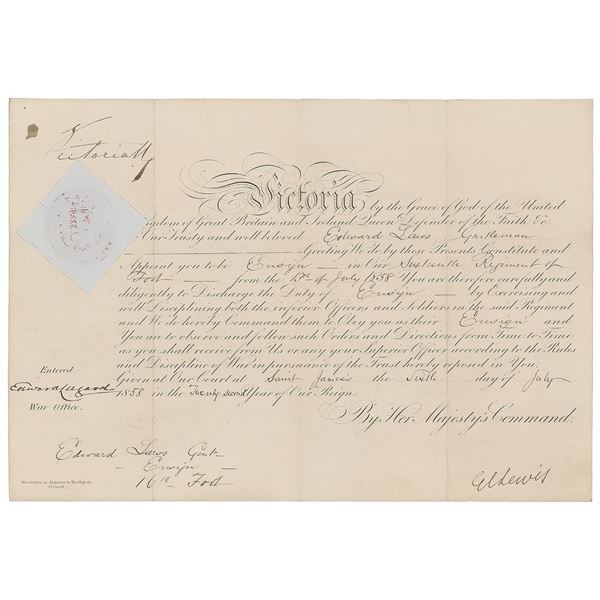 Victoria R
Victoria by the Grace of God of the United
Kingdom of Great Britain and Ireland Queen Defender of the Faith &c.
Our Trusty and well beloved Edward Laws Gentleman
Greeting We do by these Presents Constitute and
Appoint you to be Ensign in Our Sixteenth Regiment of
Foot from the of July 1858 You are therefore carefully and
diligently to Discharge the Duty of Ensign by Exercising and
well Disciplining both the inferior Officers and Soldiers in the said Regiment
and We do hereby Command them to Obey you as their Ensign and
You are to observe and follow such Orders and Directions from Time to Time
as you shall receive from Us or any your Superior Officer according to the Rules
and Discipline of War in pursuance of the Trust hereby reposed in You
Given at Our Court at Saint James's the Sixth day of July
1858 in the Twenty second Year of Our Reign.
By Her Majesty's Command.
Entered
Edward Lugard
War Office.
Edward Laws Gent
Ensign
16th Foot
GCLewis